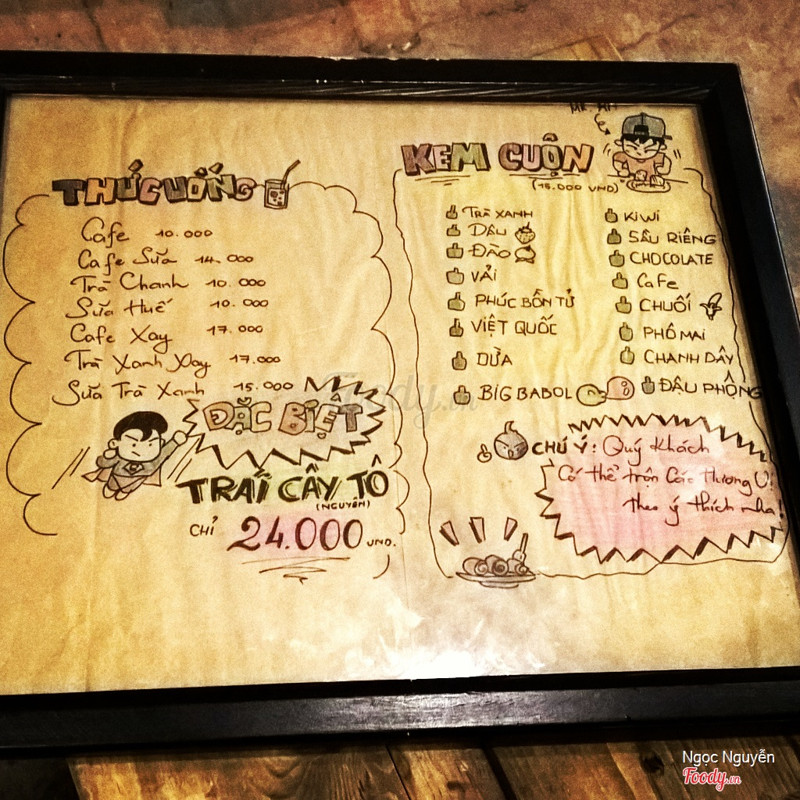 THỨC UỐNG
Cafe 10.000
Cafe Sữa 14.000
Trà Chanh 10.000
Sữa Huế 10.000
Cafe Xay 17.000
Trà Xanh Xay 17.000
Sữa Trà Xanh 15.000
ĐẶC BIỆT
TRÁI CÂY TÔ
(NGUYÊN)
CHỈ 24.000 VND.
KEM CUỘN
(15.000 VND)
TRÀ XANH
DÂU
ĐÀO
VẢI
PHÚC BỒN TỬ
VIỆT QUỐC
DỪA
BIG BABOL
KIWI
SẦU RIÊNG
CHOCOLATE
CaFe
CHUỐI
PHÔ MAI
CHANH DÂY
ĐẬU PHỘNG
CHÚ Ý: Quý Khách
Có thể trộn Các Hương Vị
theo ý thích nha!
Foody.vn
Ngọc Nguyễn
Foody.vn